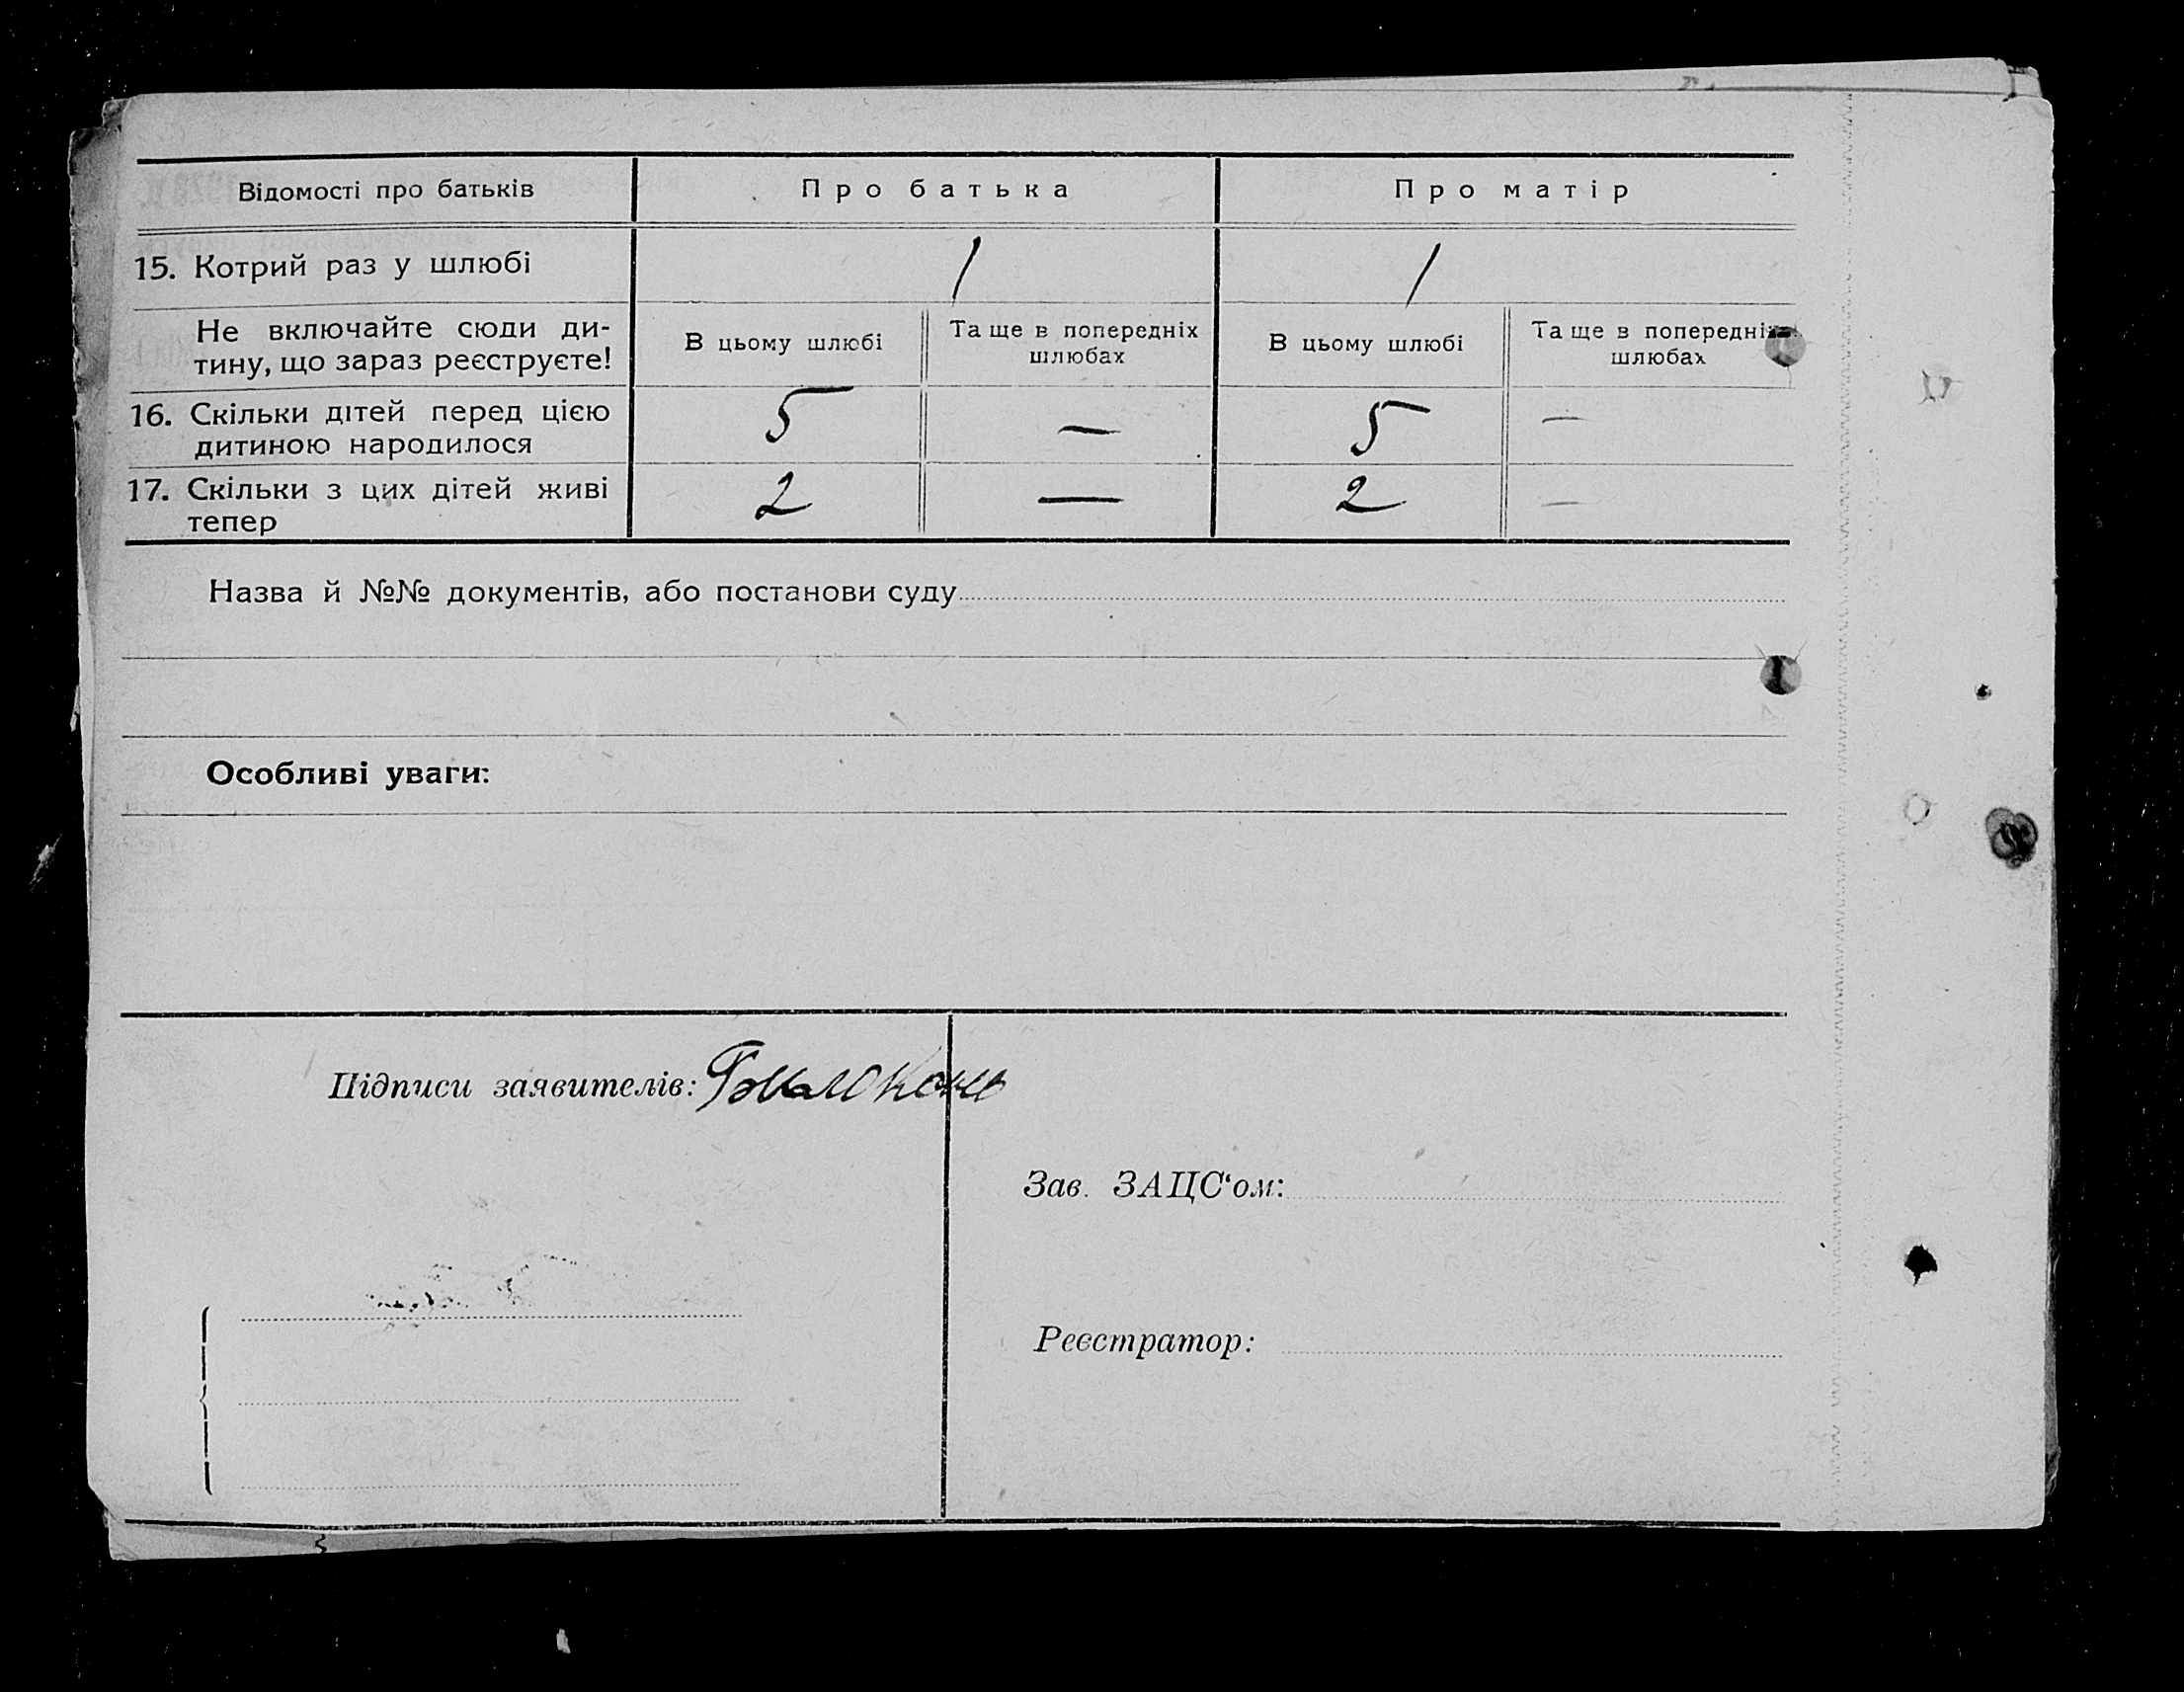 Відомості про батьків Про батька Про матір
15. Котрий раз у шлюбі 1 1
Не включайте сюди ди-
тину, що зараз реєструєте!
В цьому шлюбі
Та ще в попередніх
шлюбах
В цьому шлюбі
Та ще в попередніх
шлюбах
16. Скільки дітей перед цією
дитиною народилося
5 — 5 —
17. Скільки з цих дітей живі
тепер
2 — 2 —
Назва й №№ документів, або постанови суду
Особливі уваги:
Підписи заявителів:
Зав. ЗАЦС‘ом:
Реєстратор: